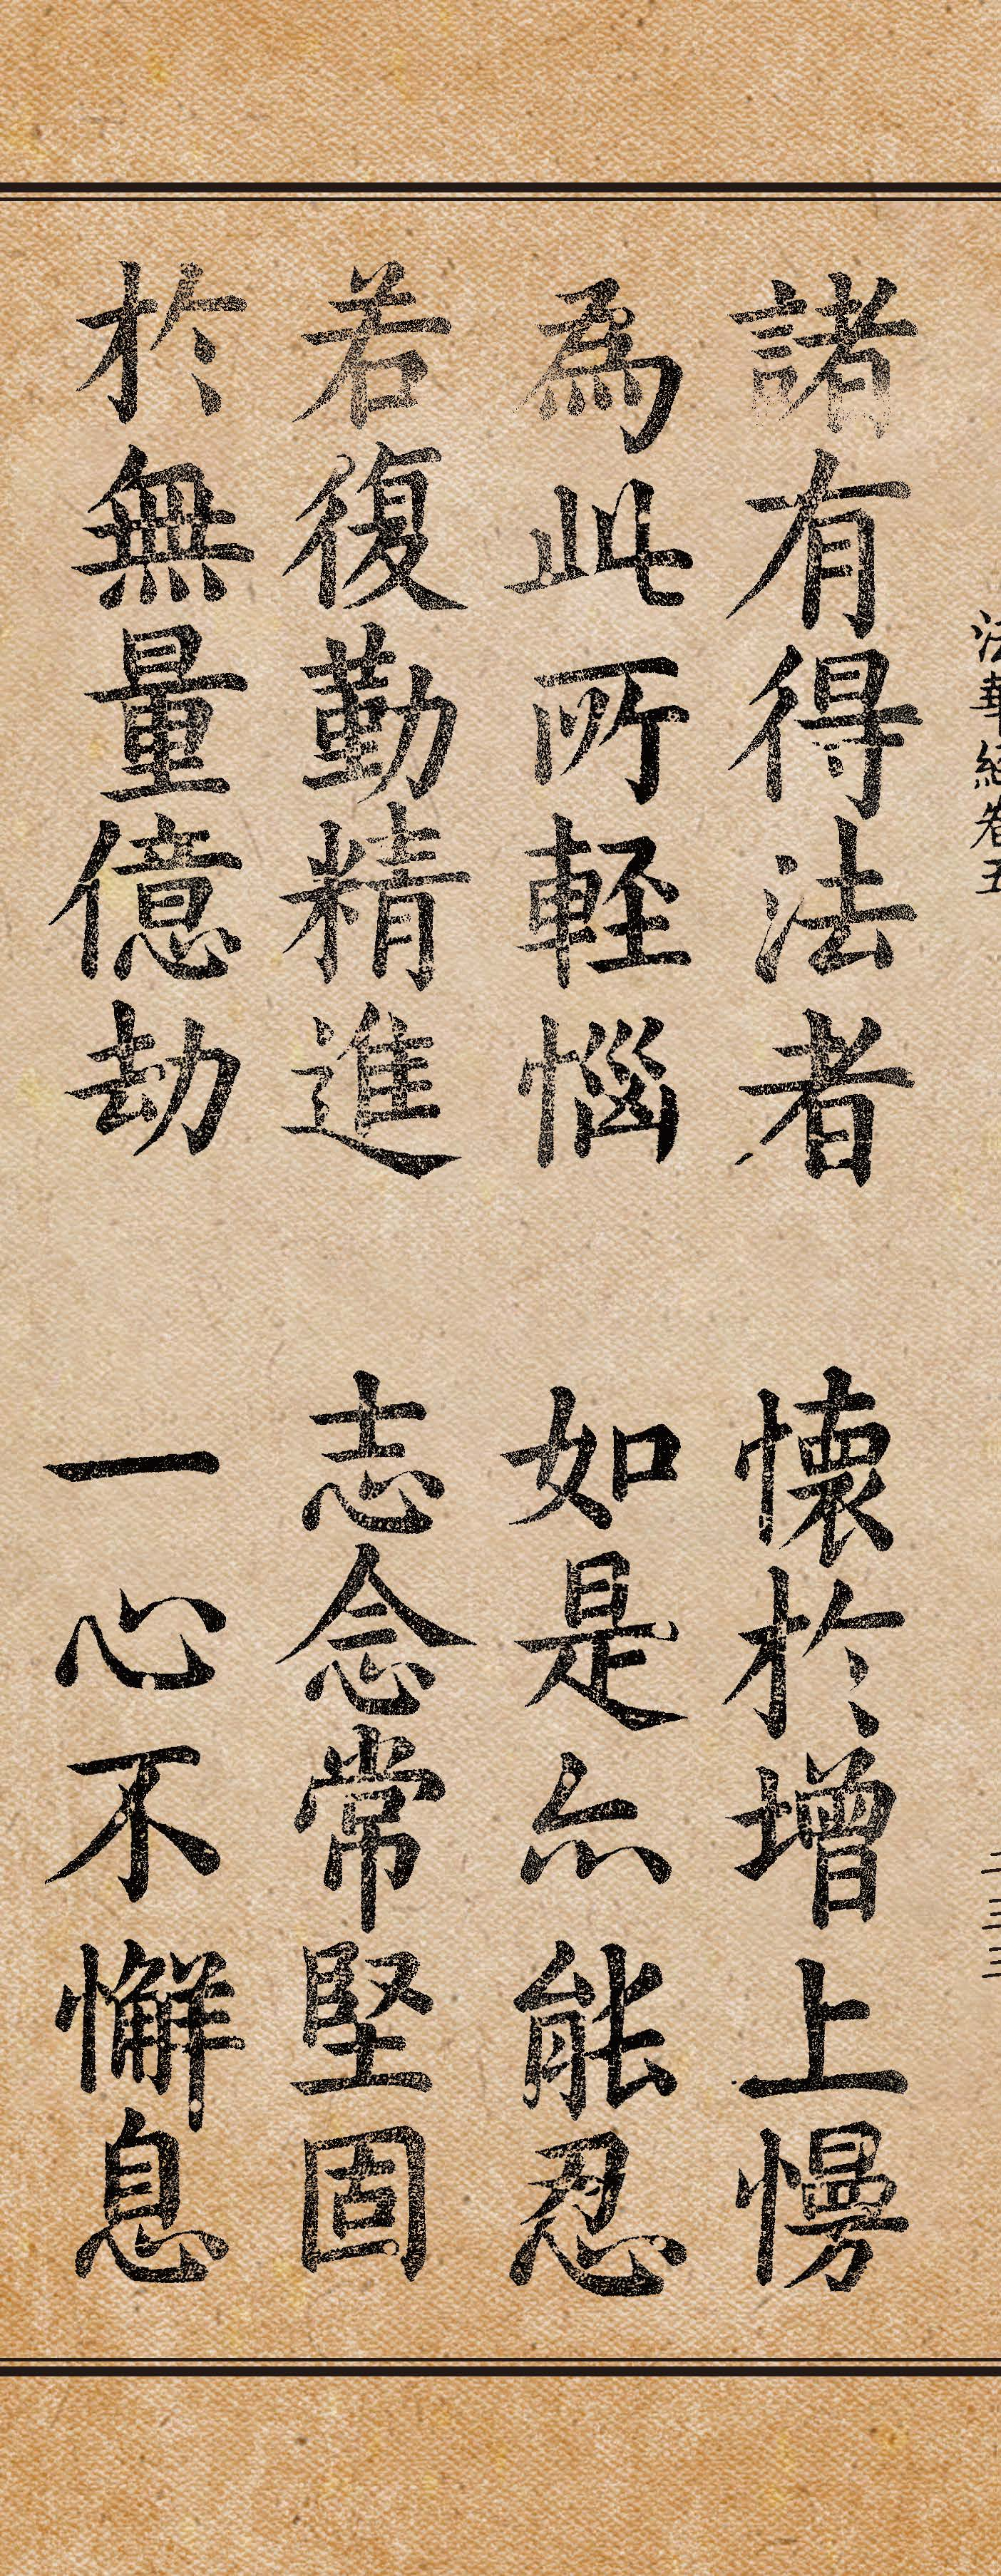 法華經卷五
二三三
諸有得法者 懷於增上慢
為此所輕惱 如是亦能忍
若復勤精進 志念常堅固
於無量億劫 一心不懈息